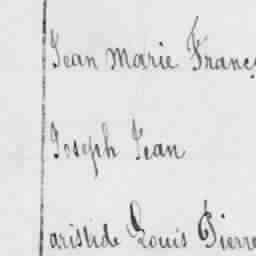 Jean Marie Franç
Joseph Jean
aristide Louis Pierre